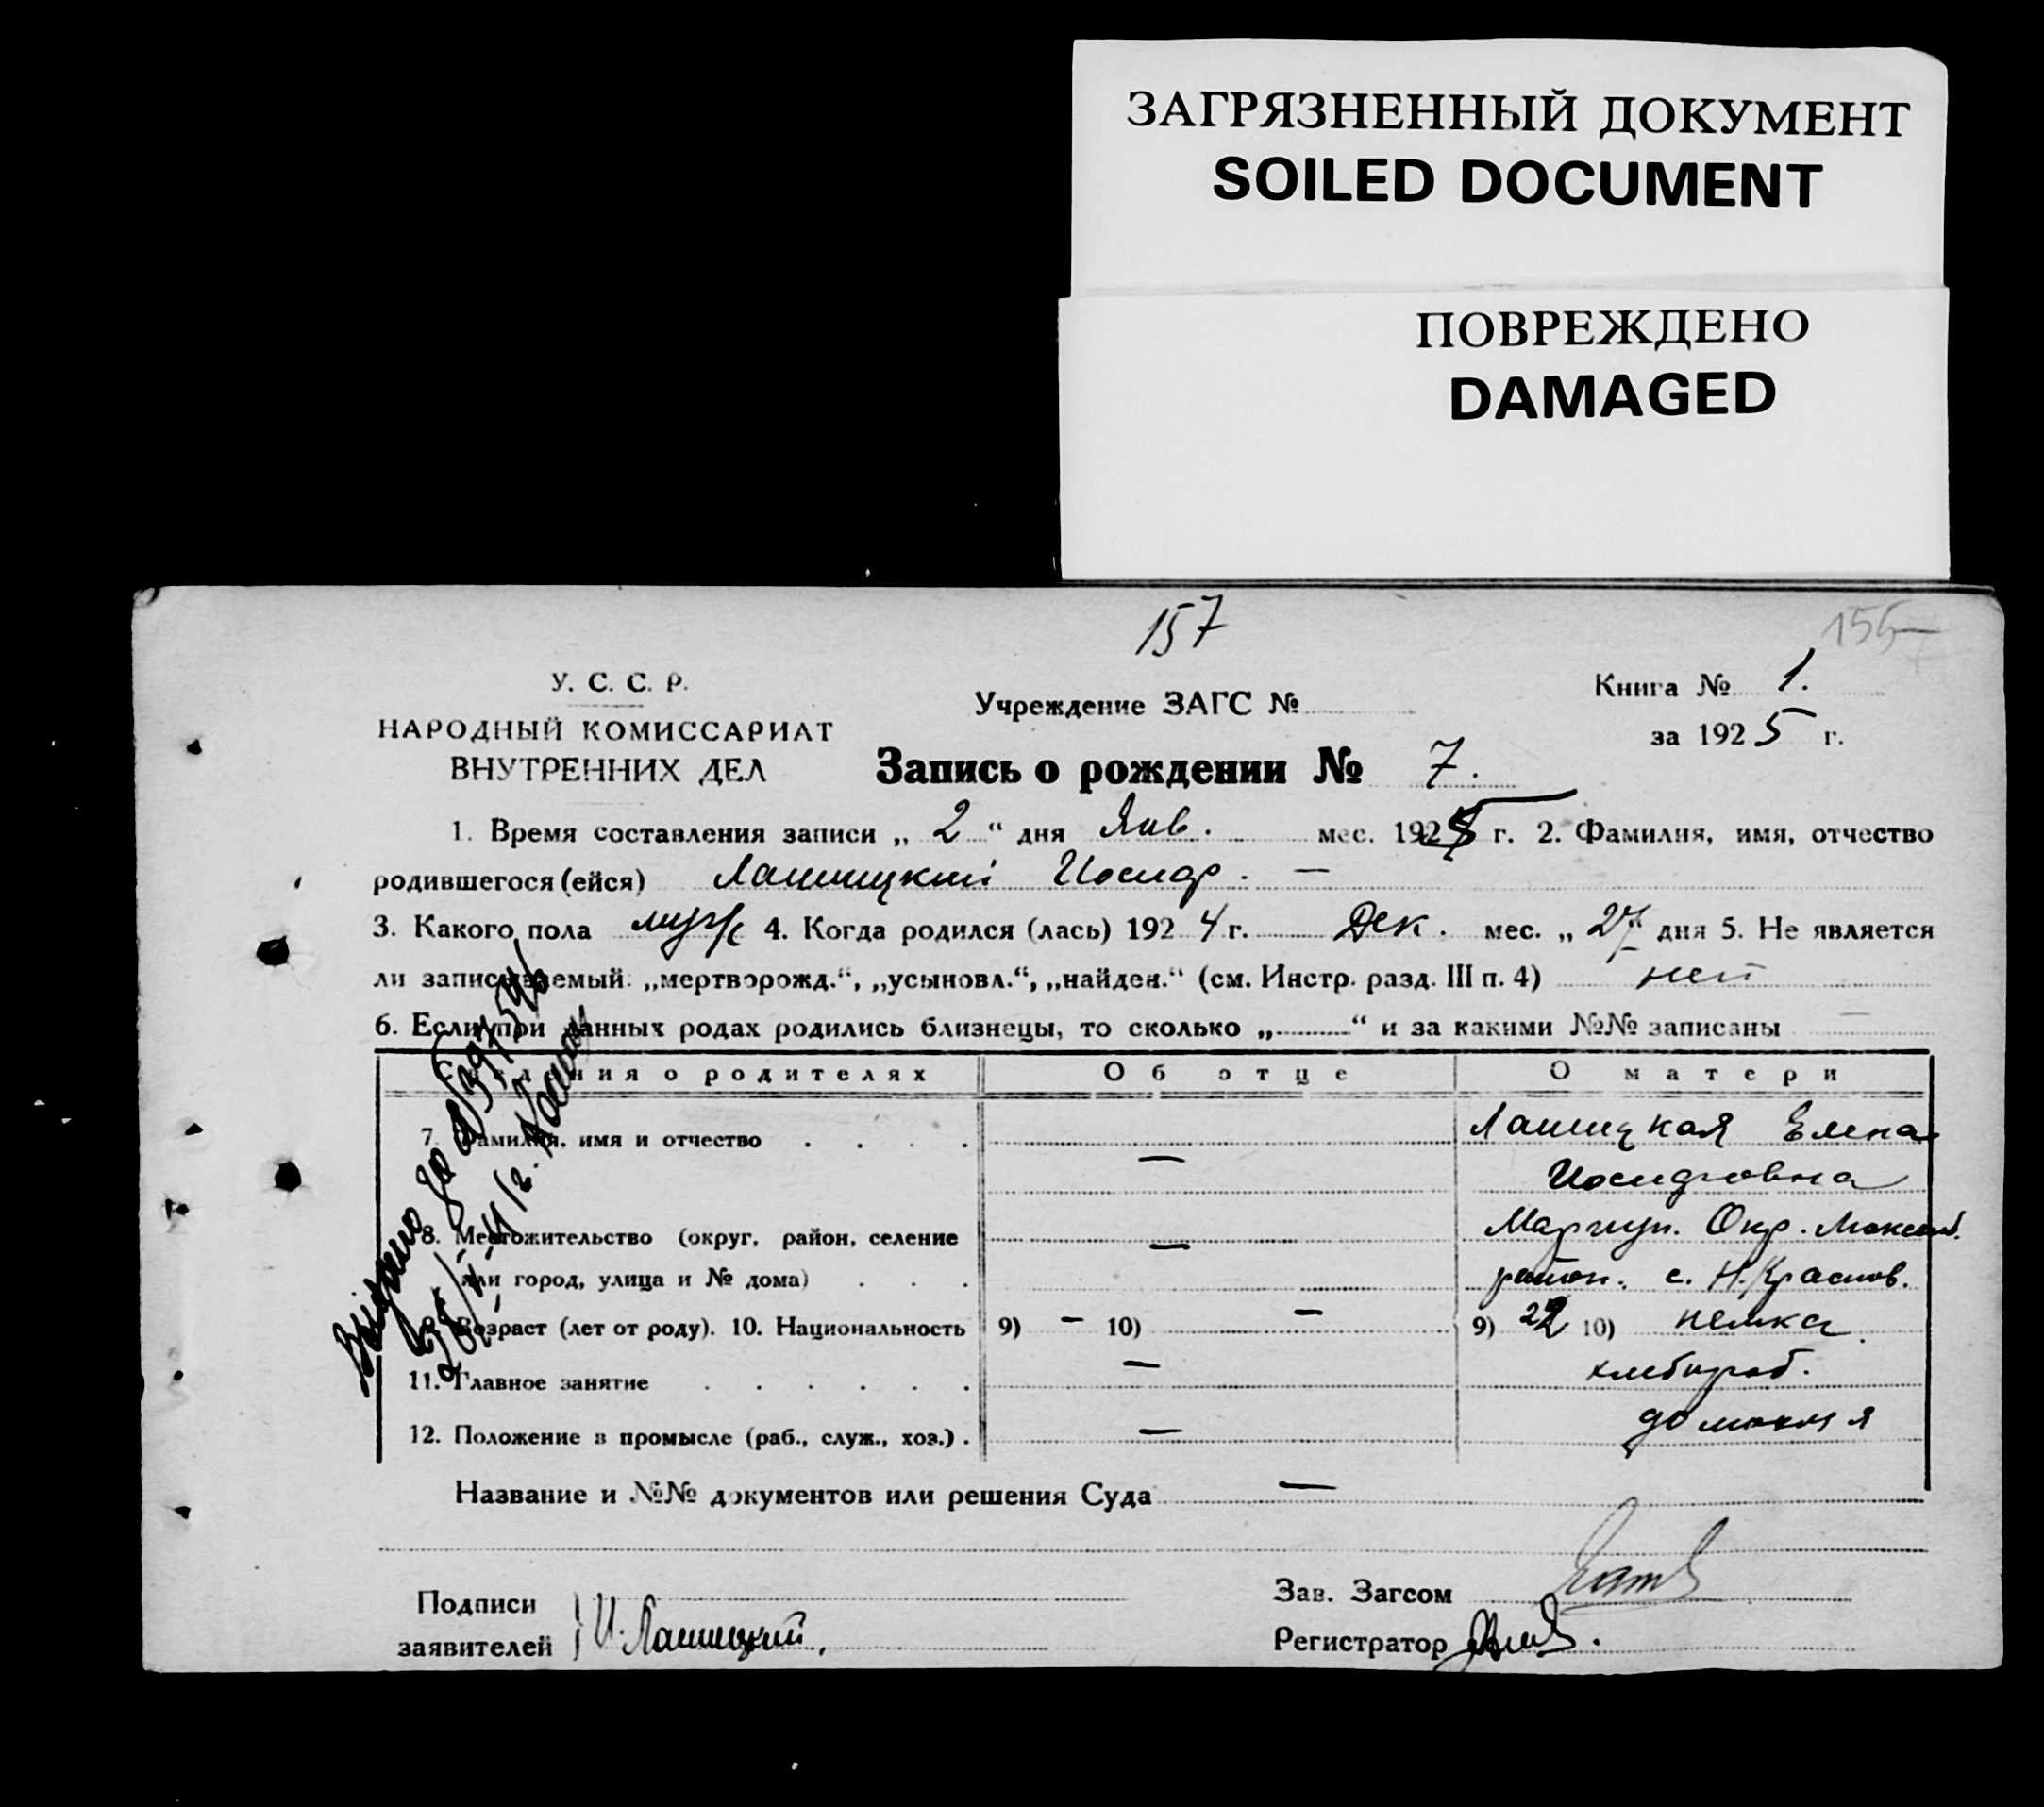 ЗАГРЯЗНЕННЫЙ ДОКУМЕНТ
SOILED DOCUMENT
ПОВРЕЖДЕНО
DAMAGED
157
155
У. С. С. Р.
НАРОДНЫЙ КОМИССАРИАТ
ВНУТРЕННИХ ДЕЛ
Учреждение ЗАГС №
Книга № 1.
за 1925 г.
Запись о рождении № 7.
1. Время составления записи „ 2 “ дня Янв. мес. 1925 г. 2. Фамилия, имя, отчество
родившегося (ейся) Лашицкий Иосиф. —
3. Какого пола муж 4. Когда родился (лась) 1924 г. Дек. мес. „ 27 “ дня 5. Не является
ли записываемый: „мертворожд.“, „усыновл.“, „найден.“ (см. Инстр. разд. III п. 4) нет
6. Если при данных родах родились близнецы, то сколько „ “ и за какими №№ записаны —
Сведения о родителях Об отце О матери
7. Фамилия, имя и отчество — Лашицкая Елена
Иосифовна
8. Местожительство (округ, район, селение — Мариуп. Окр.
или город, улица и № дома) район. с. Н. Краснов.
9. Возраст (лет от роду). 10. Национальность 9) — 10) — 9) 22 10) немка
11. Главное занятие — хлебороб.
12. Положение в промысле (раб., служ., хоз.) —
Название и №№ документов или решения Суда —
Подписи
заявителей И. Лашицкий.
Зав. Загсом
Регистратор